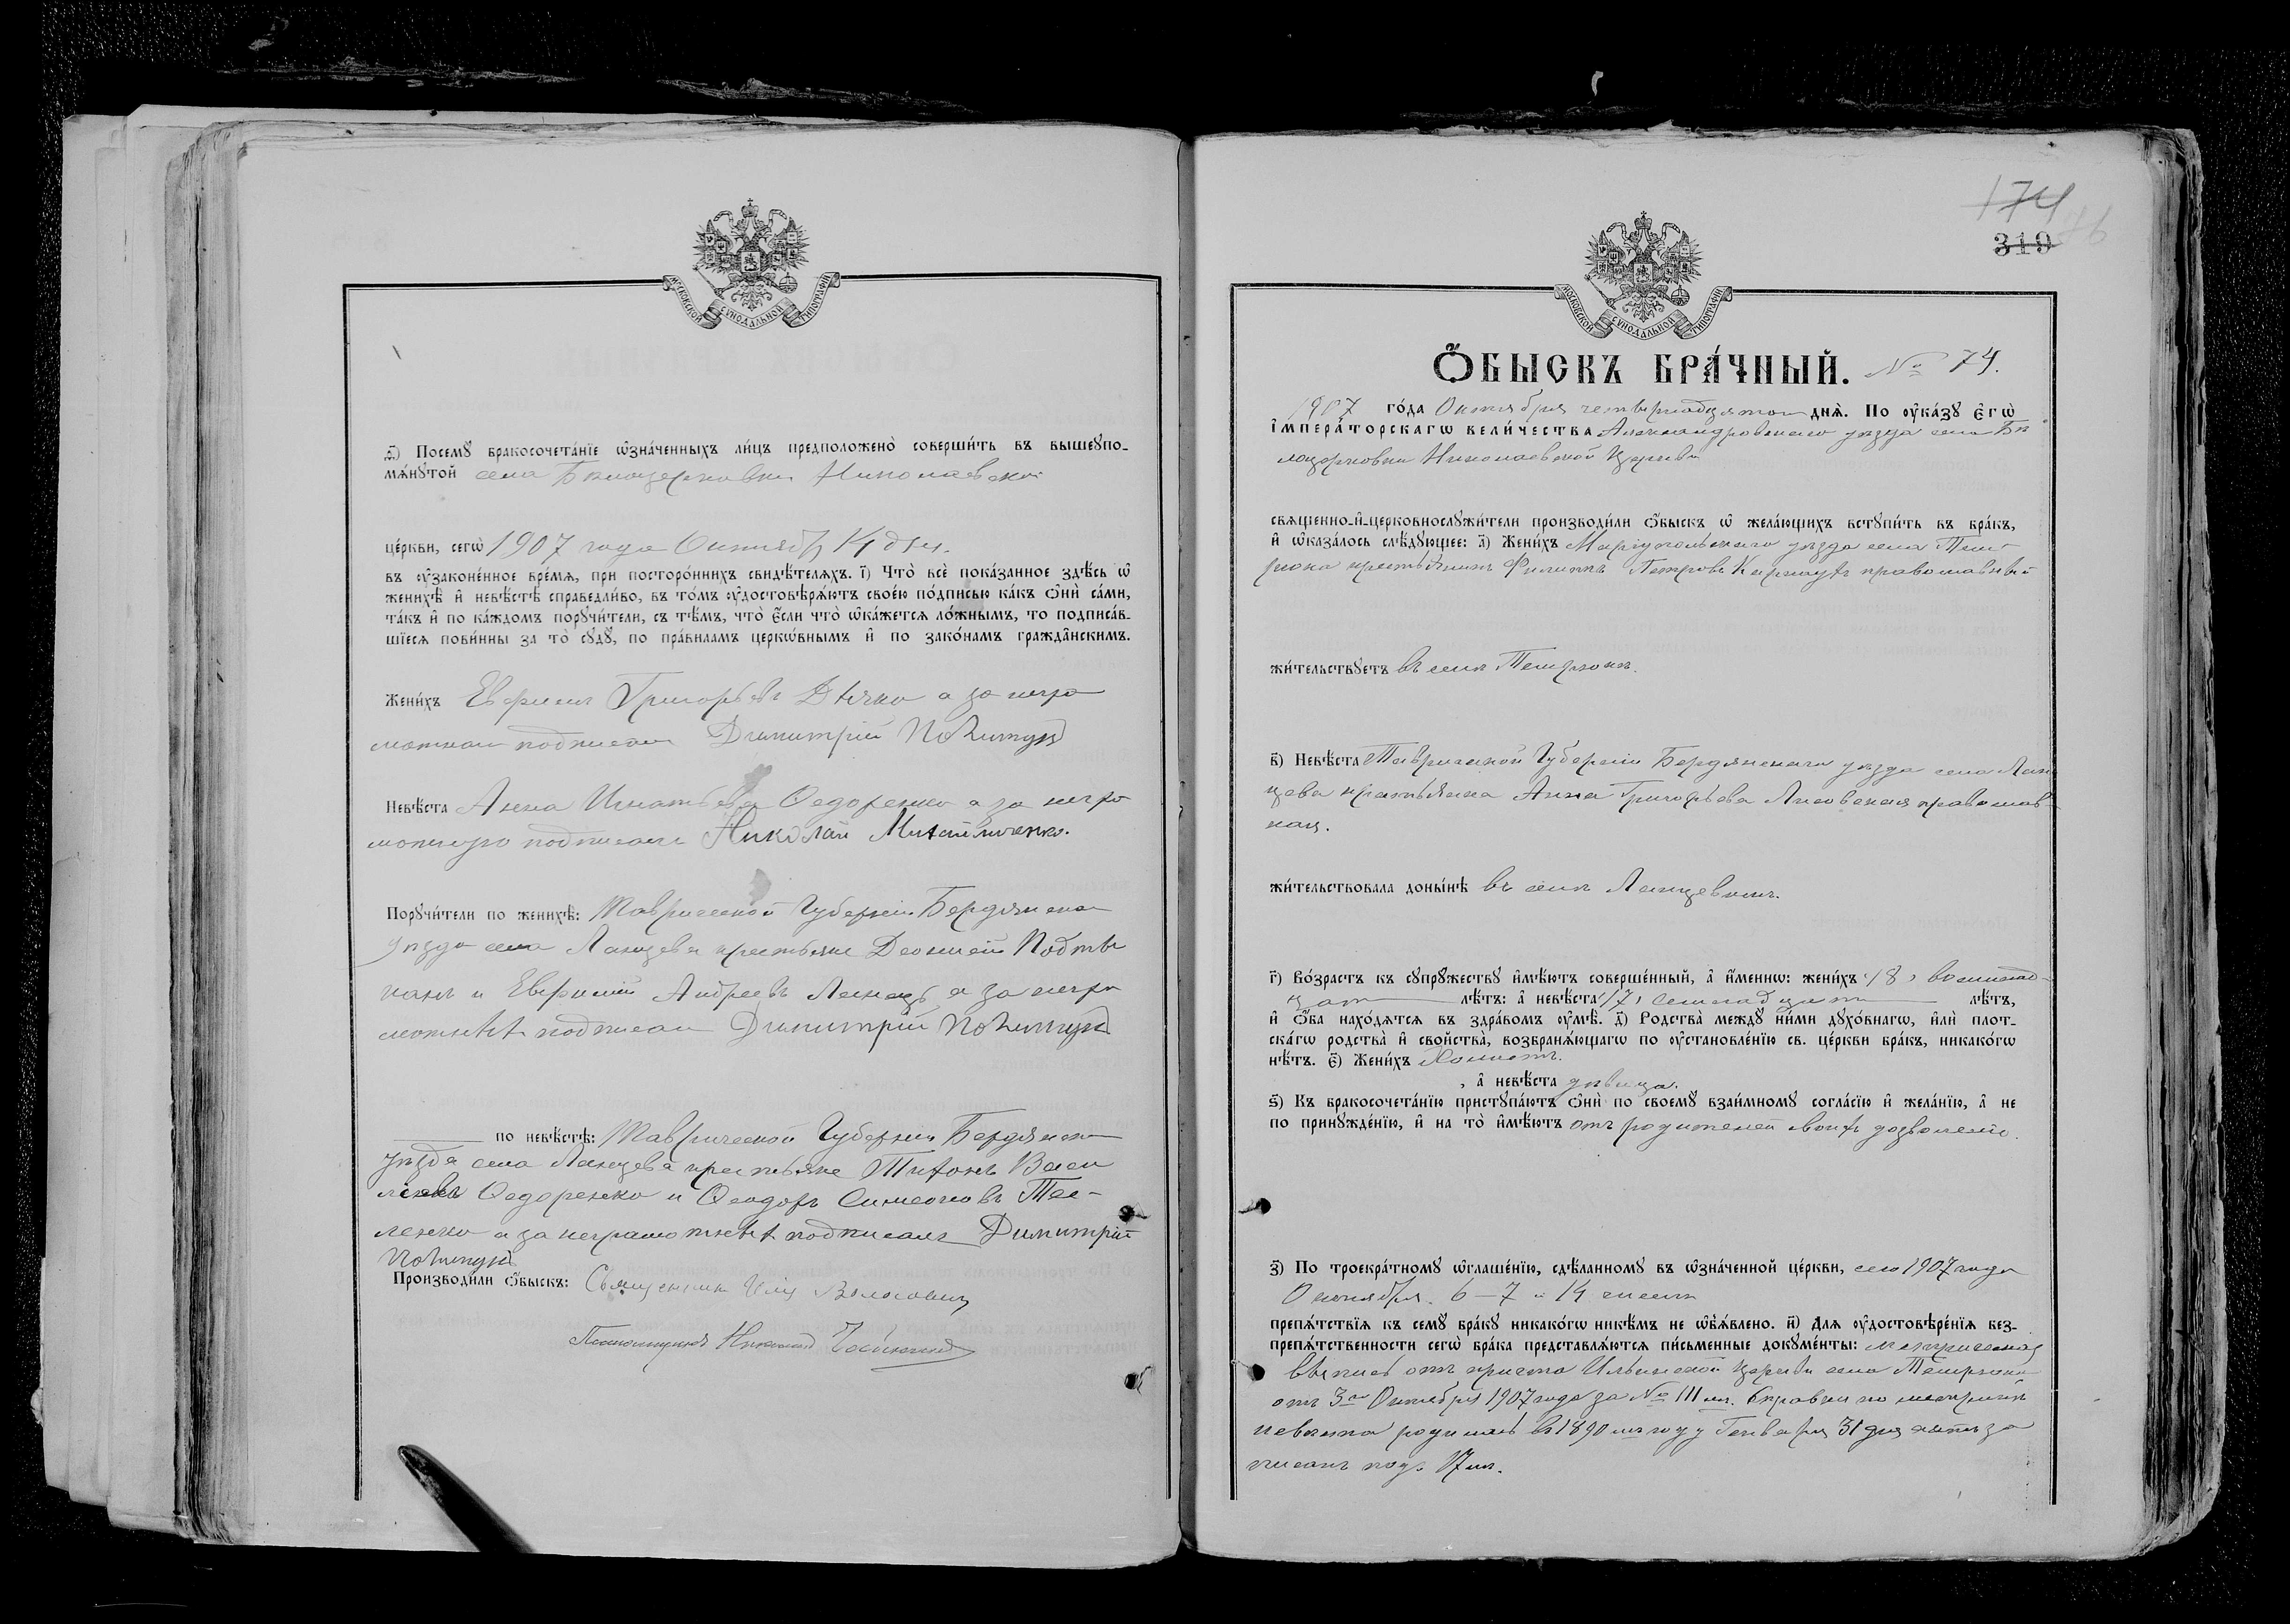 МОСКОВСКОЙ СУНОДАЛЬНОЙ ТИПОГРАФІИ
Ѳ҃) Посемꙋ̀ бракосочета́нїе ѡ҆зна́ченныхъ ли́цъ предположено̀ соверши́ть въ вышеꙋпо-
мѧ́нꙋтой села Бѣлоцерковки Николаевской
це́ркви, сегѡ̀ 1907 года Октябр 14 дня.
въ ᲂу҆зако́ненное вре́мѧ, при посторо́ннихъ свидѣ́телѧхъ. і҃) Что̀ всѐ пока́занное здѣ́сь ѡ҆
женихѣ̀ и҆ невѣ́стѣ справедли́во, въ то́мъ ᲂу҆достовѣрѧ́ютъ свое́ю по́дписью ка́къ ѻ҆нѝ са́ми,
та́къ и҆ по ка́ждомъ порꙋчи́тели, съ тѣ́мъ, что̀ є҆́сли что̀ ѡ҆ка́жетсѧ ло́жнымъ, то подписа́в-
шїесѧ пови́нны за то̀ сꙋдꙋ̀, по пра́виламъ церкѡ́внымъ и҆ по зако́намъ гражда̑нскимъ.
Жени́хъ Григорьевъ Дячко а за негра
мотнаго подписал Димитрій
Невѣ́ста Анна Игнатьева Ѳедоренко а за негра
мотную подписалъ Николай Михайличенко.
Порꙋчи́тели по женихѣ̀: Таврической Губерніи Бердянска
уѣзда села Ланцева крестьяне
и Евфимій Андреевъ а за негра
мотныхъ подписал Димитрій
по невѣ́стѣ: Таврической Губерніи Бердянска
уѣзда села Ланцева крестьяне Тихонъ Васи
льевъ Ѳедоренко и Ѳеодоръ Симеоновъ Те-
ленко а за неграмотныхъ подписалъ Димитрій
Производи́ли ѻ҆́быскъ: Священникъ
Псаломщикъ Николай
174
319
МОСКОВСКОЙ СУНОДАЛЬНОЙ ТИПОГРАФІИ
Ѻ҆́БЫСКЪ БРА́ЧНЫЙ. № 74.
1907 го́да Октября четырнадцатого днѧ̀. По ᲂу҆ка́зꙋ Є҆гѡ̀
І҆мпера́торскагѡ вели́чества Александровскаго уѣзда села Бѣ
лоцерковки Николаевской Церкви
свѧще́нно-и҆-церковнослꙋжи́тели производи́ли ѻ҆́быскъ ѡ҆ жела́ющихъ встꙋпи́ть въ бра́къ,
и҆ ѡ҆каза́лось слѣ́дꙋющее: а҃) Жени́хъ Маріупольскаго уѣзда села Тем-
рюка крестьянинъ Филиппъ Петровъ Карнаухъ православный
жи́тельствꙋетъ въ селѣ Темрюкѣ.
в҃) Невѣ́ста Таврической Губерніи Бердянскаго уѣзда села Лан
цева крестьянка Анна Григорьева Лисовская православ-
ная.
жи́тельствовала доны́нѣ въ селѣ Ланцевомъ.
г҃) Во́зрастъ къ сꙋпрꙋ́жествꙋ и҆мѣ́ютъ соверше́нный, а҆ и҆́меннѡ: жени́хъ 18, восемнад-
цать лѣ́тъ: а҆ невѣ́ста 17, семнадцать лѣ́тъ,
и҆ ѻ҆́ба нахо́дѧтсѧ въ здра́вомъ ᲂу҆мѣ̀. д҃) Родства̀ междꙋ̀ ни́ми дꙋхо́внагѡ, и҆лѝ плот-
ска́гѡ родства̀ и҆ сво́йства, возбранѧ́ющагѡ по ᲂу҆становле́нїю св. це́ркви бра́къ, никако́гѡ
нѣ́тъ. є҃) Жени́хъ Холостъ.
, а҆ невѣ́ста дѣвица.
ѕ҃) Къ бракосочета́нїю пристꙋпа́ютъ ѻ҆нѝ по своемꙋ̀ взаи́мномꙋ согла́сїю и҆ жела́нїю, а҆ не
по принꙋжде́нїю, и҆ на то̀ и҆мѣ́ютъ отъ родителей своихъ дозволеніе.
з҃) По троекра́тномꙋ ѡ҆глаше́нїю, сдѣ́ланномꙋ въ ѡ҆зна́ченной це́ркви, сего 1907 года
Октября. 6 – 7 и 14 чиселъ
препѧ́тствїѧ къ семꙋ̀ бра́кꙋ никако́гѡ никѣ́мъ не ѡ҆б̾ѧ́влено. и҃) Длѧ ᲂу҆достовѣре́нїѧ без-
препѧ́тственности сегѡ̀ бра́ка представлѧ́ютсѧ пи́сьменные докꙋме́нты: метрическая
выпись отъ причта Ильинской Церкви села Темрюка
отъ 3го Октября 1907 года за № 111 м. Справка по метрикѣ
невѣста родилась въ 1890 мъ году Генваря 31 дня актъ за
писанъ подъ 17 м.